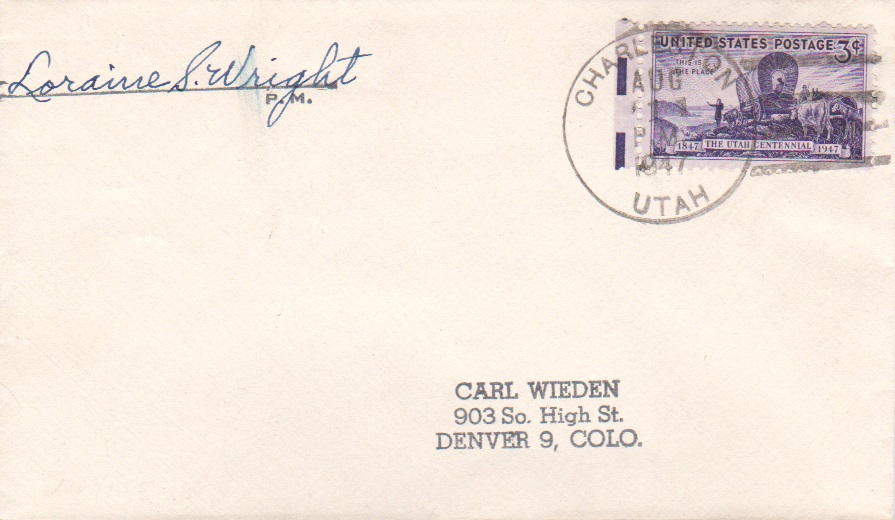 Loraine S. Wright
P.M.
UNITED STATES POSTAGE 3¢
THIS IS
THE PLACE
1847 THE UTAH CENTENNIAL 1947
CHARLESTON
AUG
P M
1947
UTAH
CARL WIEDEN
903 So. High St.
DENVER 9, COLO.